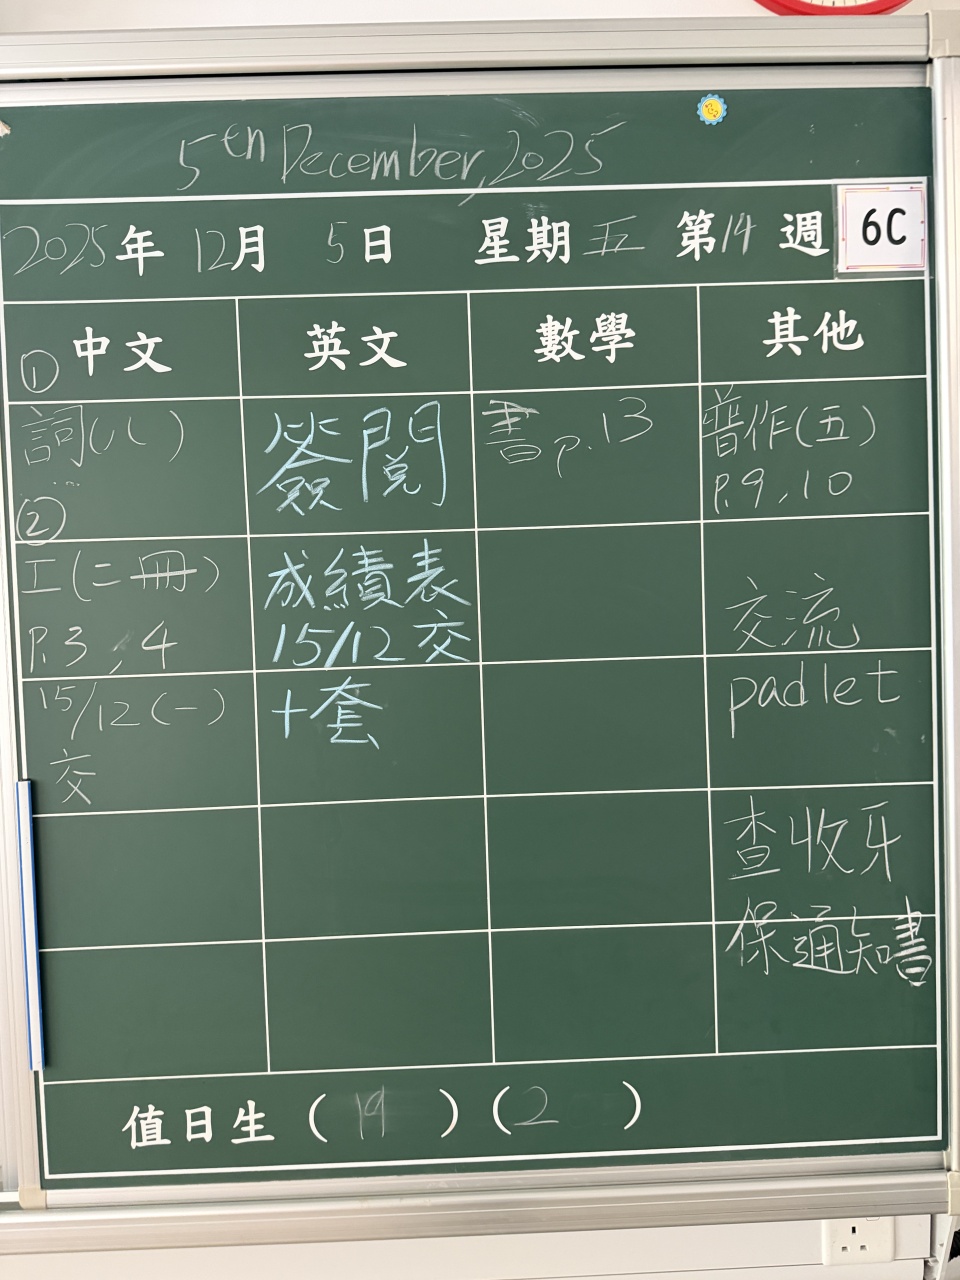 5th December, 2025
2025年 12月 5日 星期五 第14週
6C
① 中文 英文 數學 其他
詞(八)
②
工(二冊)
P.3, 4
15/12(一)
交
簽閱
成績表
15/12交
十套
書p.13
普作(五)
P.9, 10
交流
padlet
查收牙
保通知書
值日生 (19) (2)